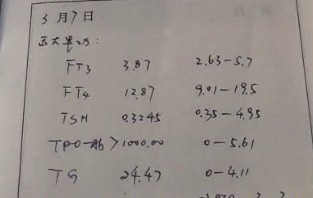 3月7日
FT3 3.87 2.63-5.7
FT4 12.87 9.01-19.5
TSH 0.3245 0.35-4.95
TPO-抗 >1000.00 0-5.61
TG 24.47 0-4.11